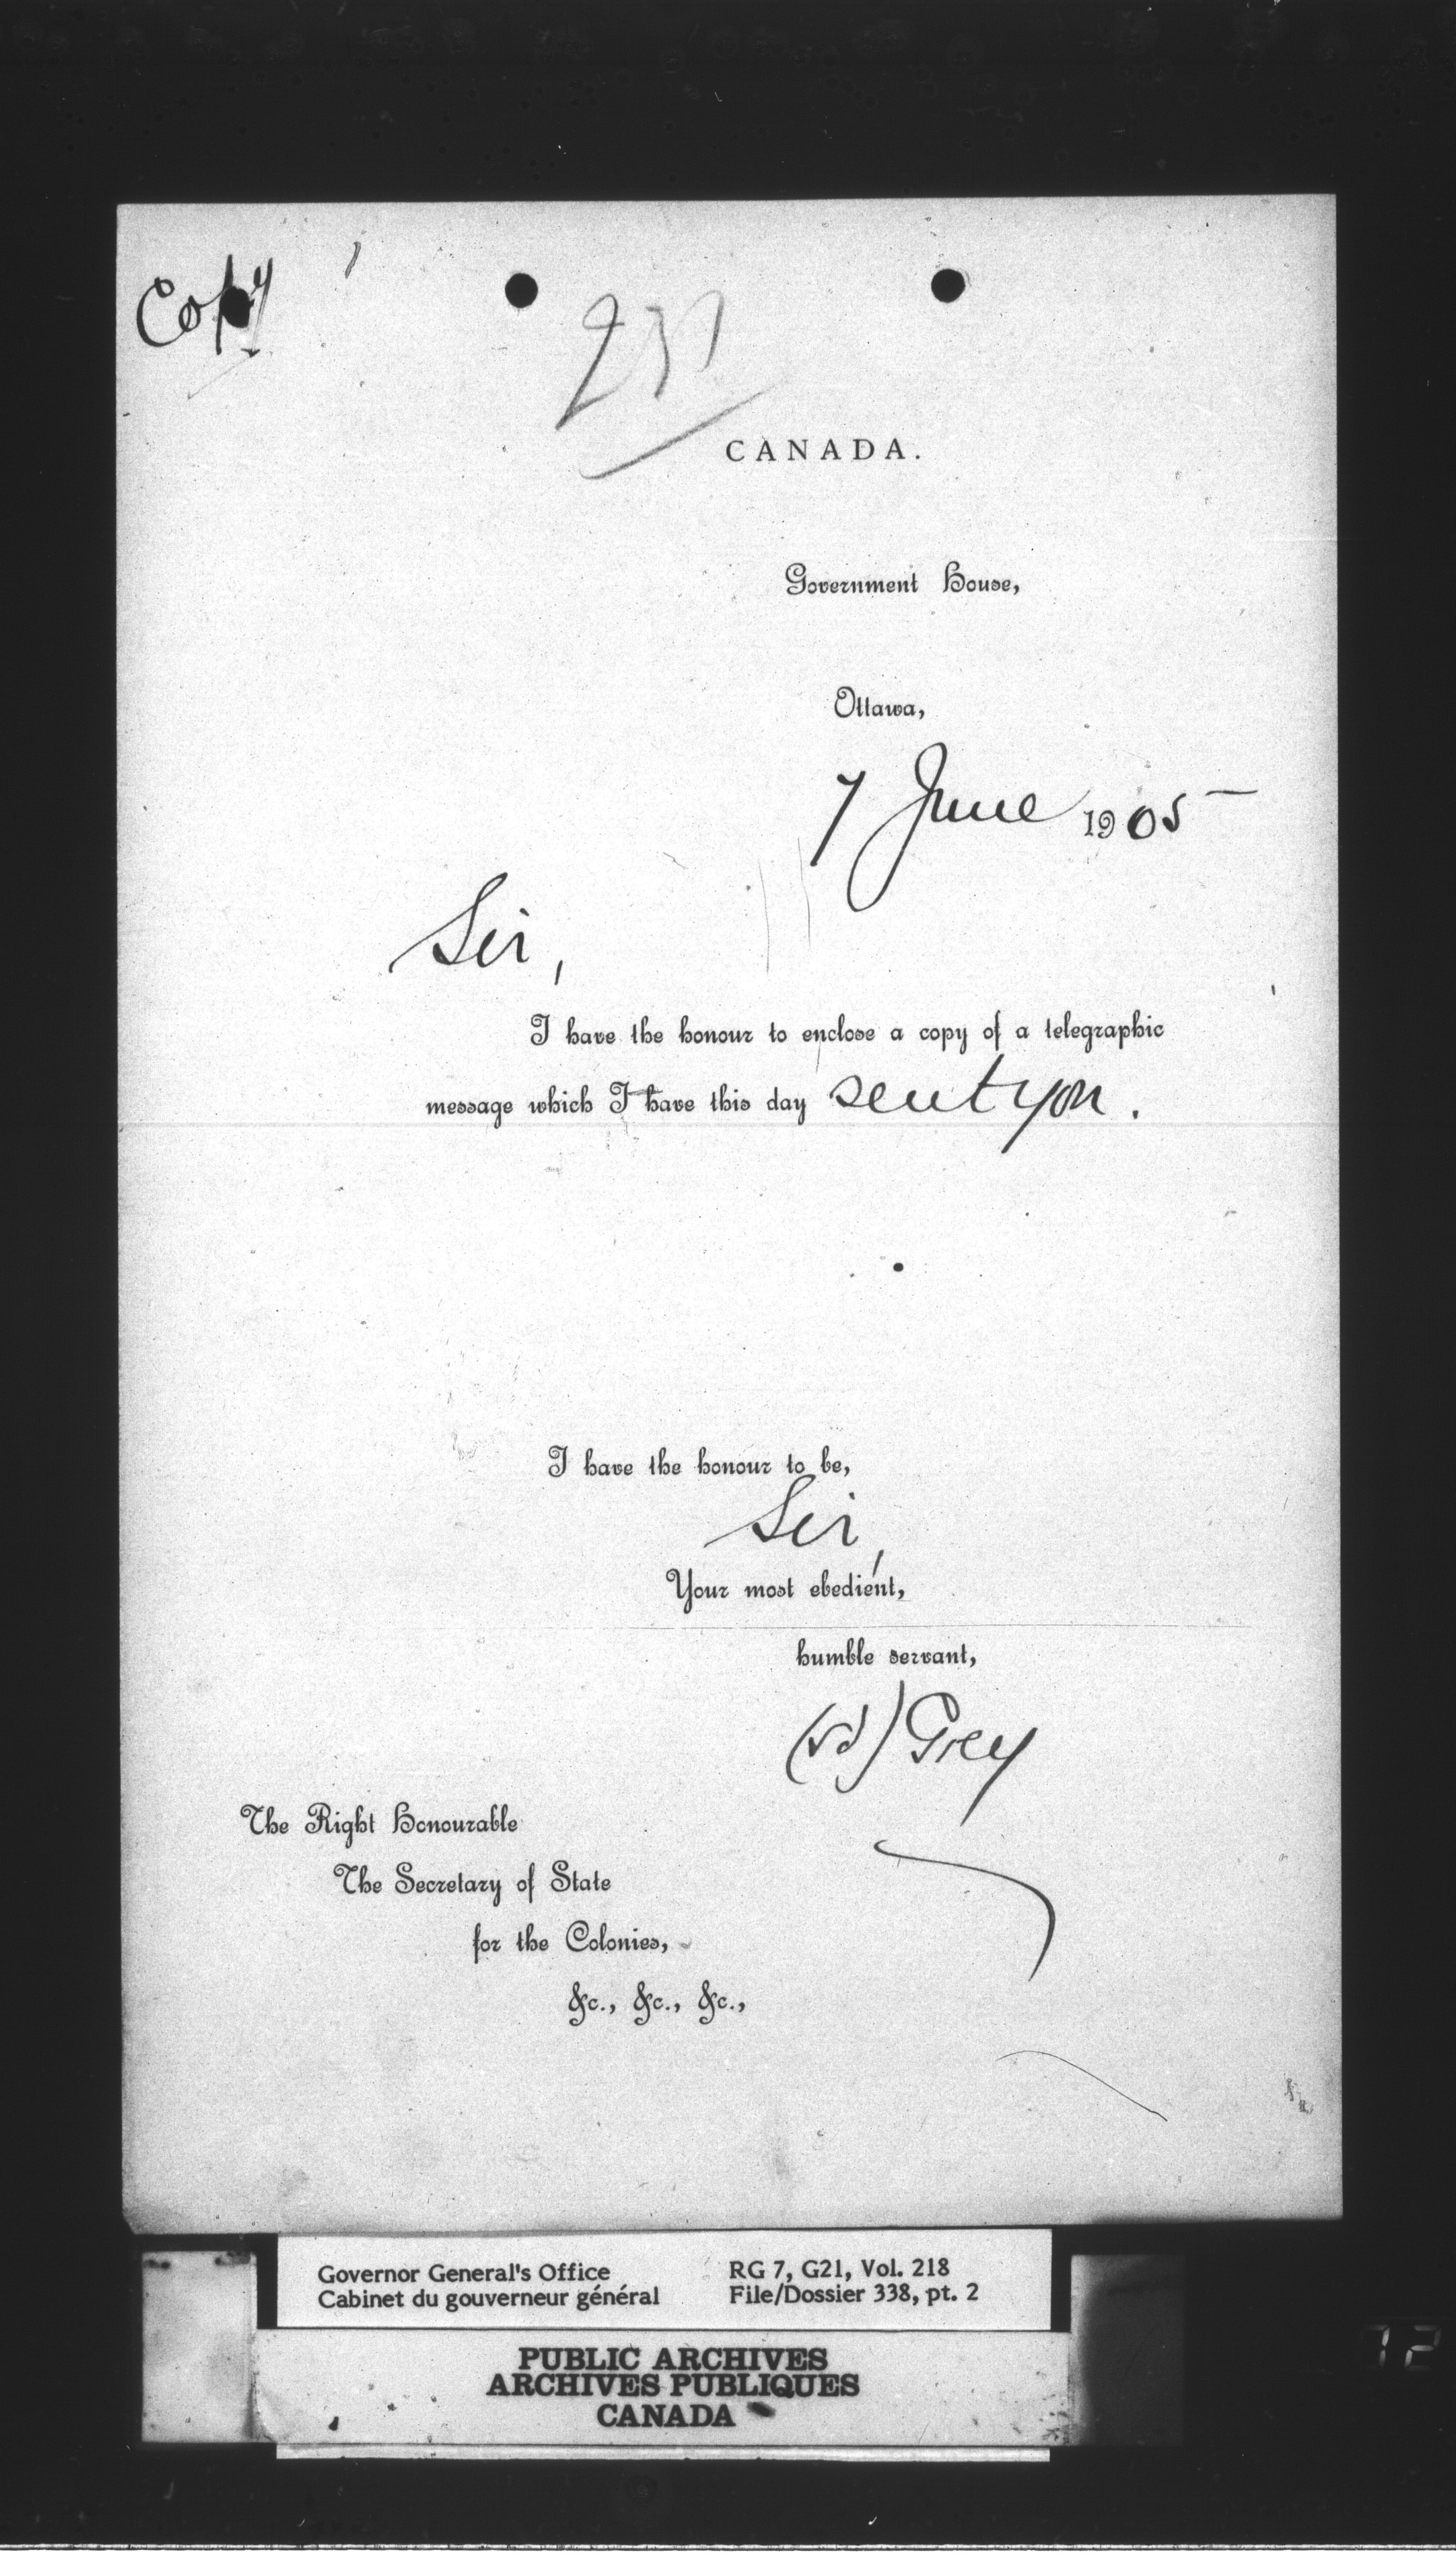 Copy
CANADA.
Government House,
Ottawa,
7 June 1905
Sir,
I have the honour to enclose a copy of a telegraphic
message which I have this day sent you.
I have the honour to be,
Sir,
Your most obedient,
humble servant,
(sd) Grey
The Right Honourable
The Secretary of State
for the Colonies,
&c., &c., &c.,
Governor General's Office
Cabinet du gouverneur général
RG 7, G21, Vol. 218
File/Dossier 338, pt. 2
PUBLIC ARCHIVES
ARCHIVES PUBLIQUES
CANADA
12